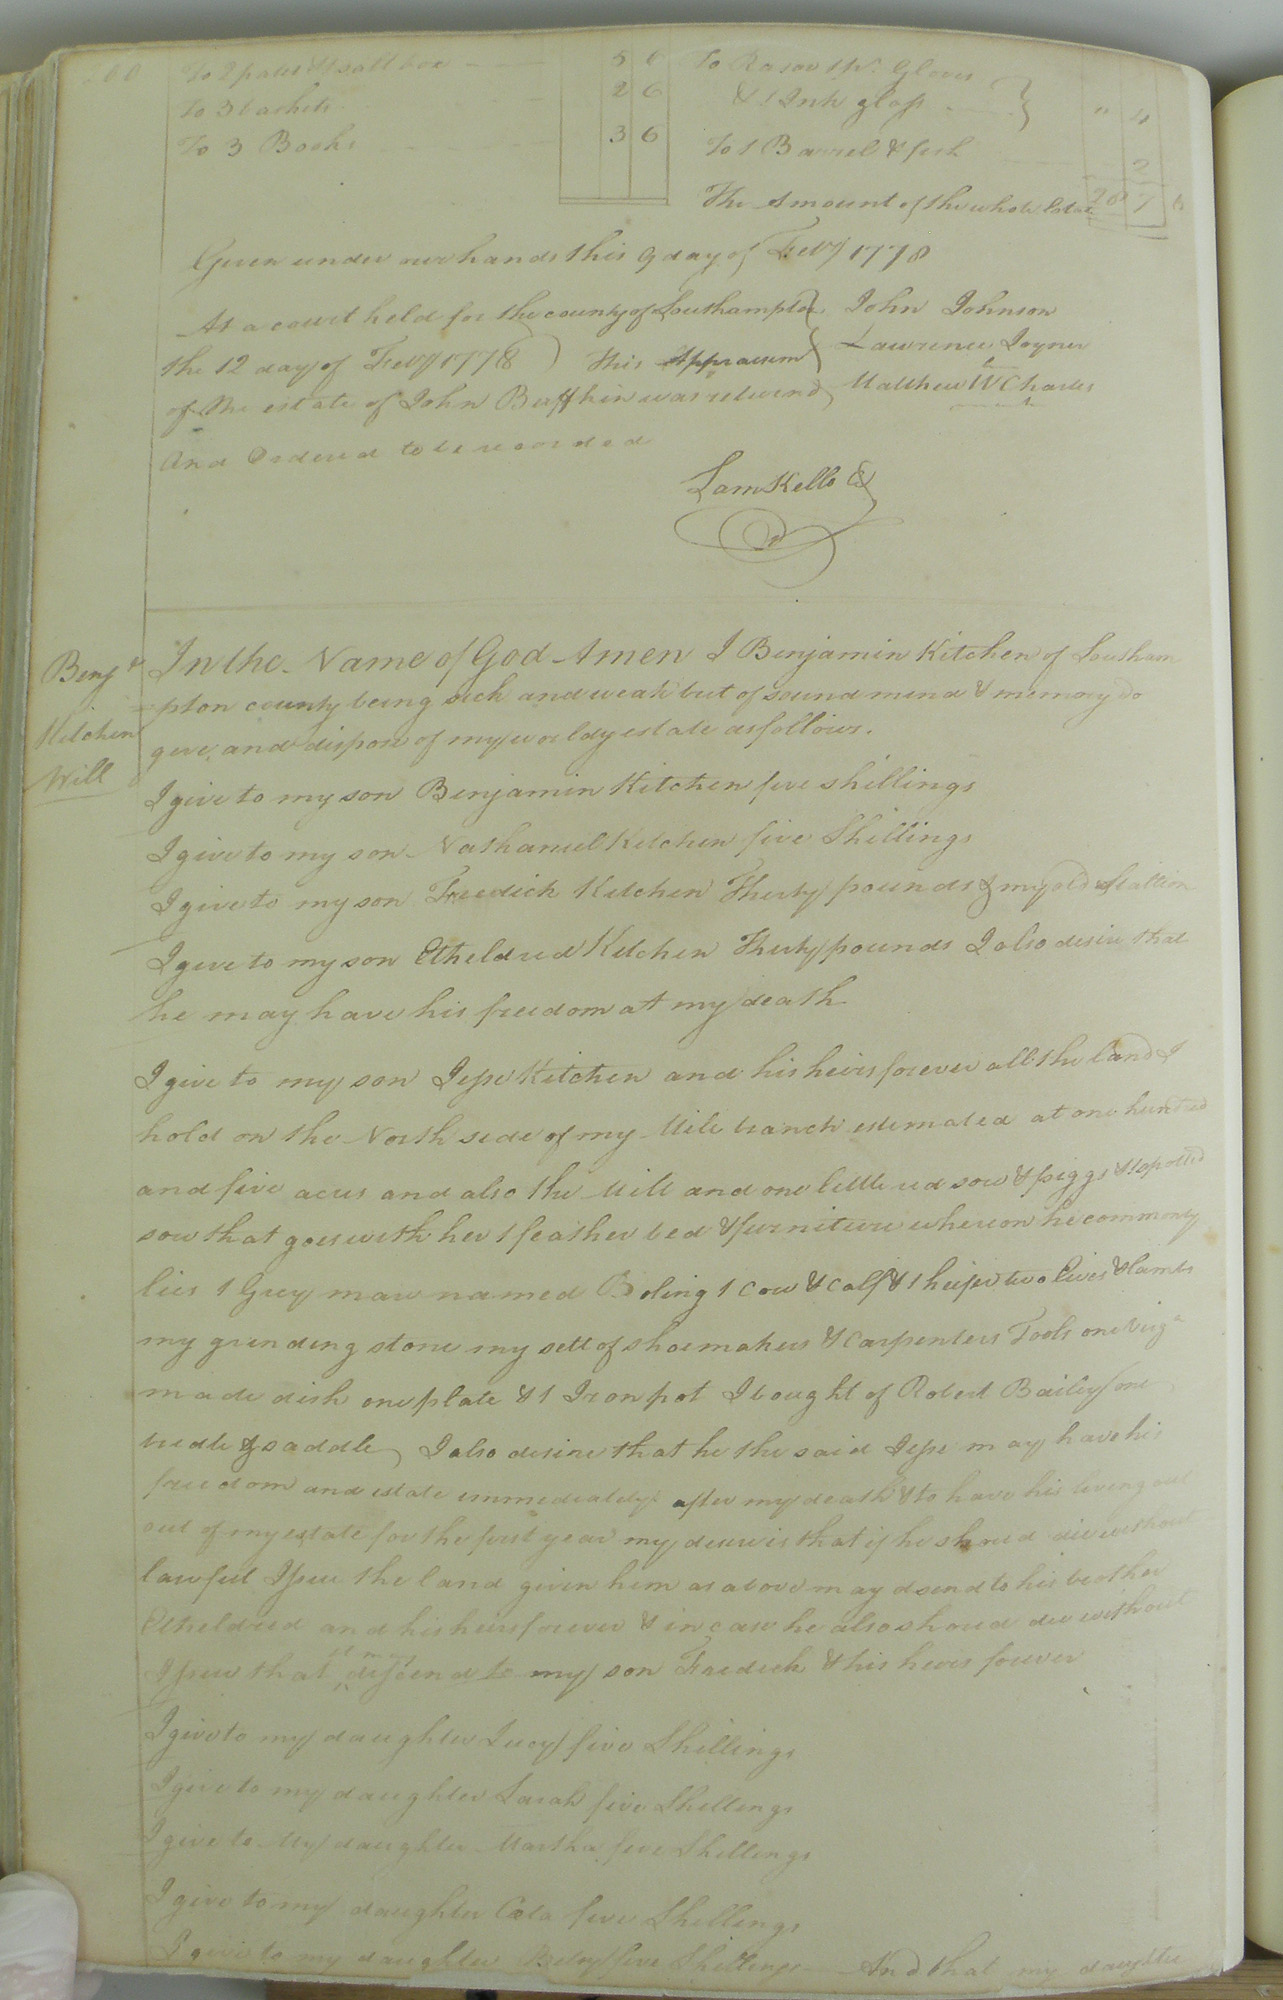 To 2 pales & salt box 5 6
To 3 baskets 2 6
To 3 Books 3 6
To Rasor 1 pr. Gloves
& 1 Ink glass " 4
To 1 Barrel & fish 2
The Amount of the whole Estate 28 7
Given under our hands this 9 day of Feby 1778
At a court held for the county of Southampton
the 12 day of Feby 1778 This Appraisem
of the estate of John Buffkin was returned
And Ordered to be recorded
John Johnson
Lawrence Joyner
Matthew W Charles
Sam Kello
Benj
Kitchen
Will
In the Name of God Amen I Benjamin Kitchen of Southam
pton county being sick and weak but of sound mind & memory do
give and dispose of my worldy estate as follows.
I give to my son Benjamin Kitchen five shillings
I give to my son Nathaniel Kitchen five Shillings
I give to my son Fredick Kitchen Thirty pounds & my old Stallion
I give to my son Etheldred Kitchen Thirty pounds I also desire that
he may have his freedom at my death
I give to my son Jesse Kitchen and his heirs forever all the land I
hold on the North side of my Mill branch estimated at one hundred
and five acres and also the Mill and one little red sow & piggs & 1 spotted
sow that goes with her 1 feather bed & furniture whereon he commonly
lies 1 Grey mare named Boling 1 cow & calf & sheep two Ewes & lambs
my grinding stone my sett of shoemakers & Carpenters Tools one Virga
made dish one plate & 1 Iron pot I bought of Robert Bailey one
bridle & saddle I also desire that he the said Jesse may have his
freedom and estate immediately after my death & to have his living out
out of my estate for the first year my desire is that if he shoud die without
lawful Issue the land given him as above may dsend to his brother
Etheldred and his heirs forever & in case he also shoud die without
Issue that it may dissend to my son Fredick & his heirs forever
I give to my daughter Lucy five Shillings
I give to my daughter Sarah five Shillings
I give to My daughter Martha five Shillings
I give to my daughter five Shillings
I give to my daughter five Shillings And that my daughter